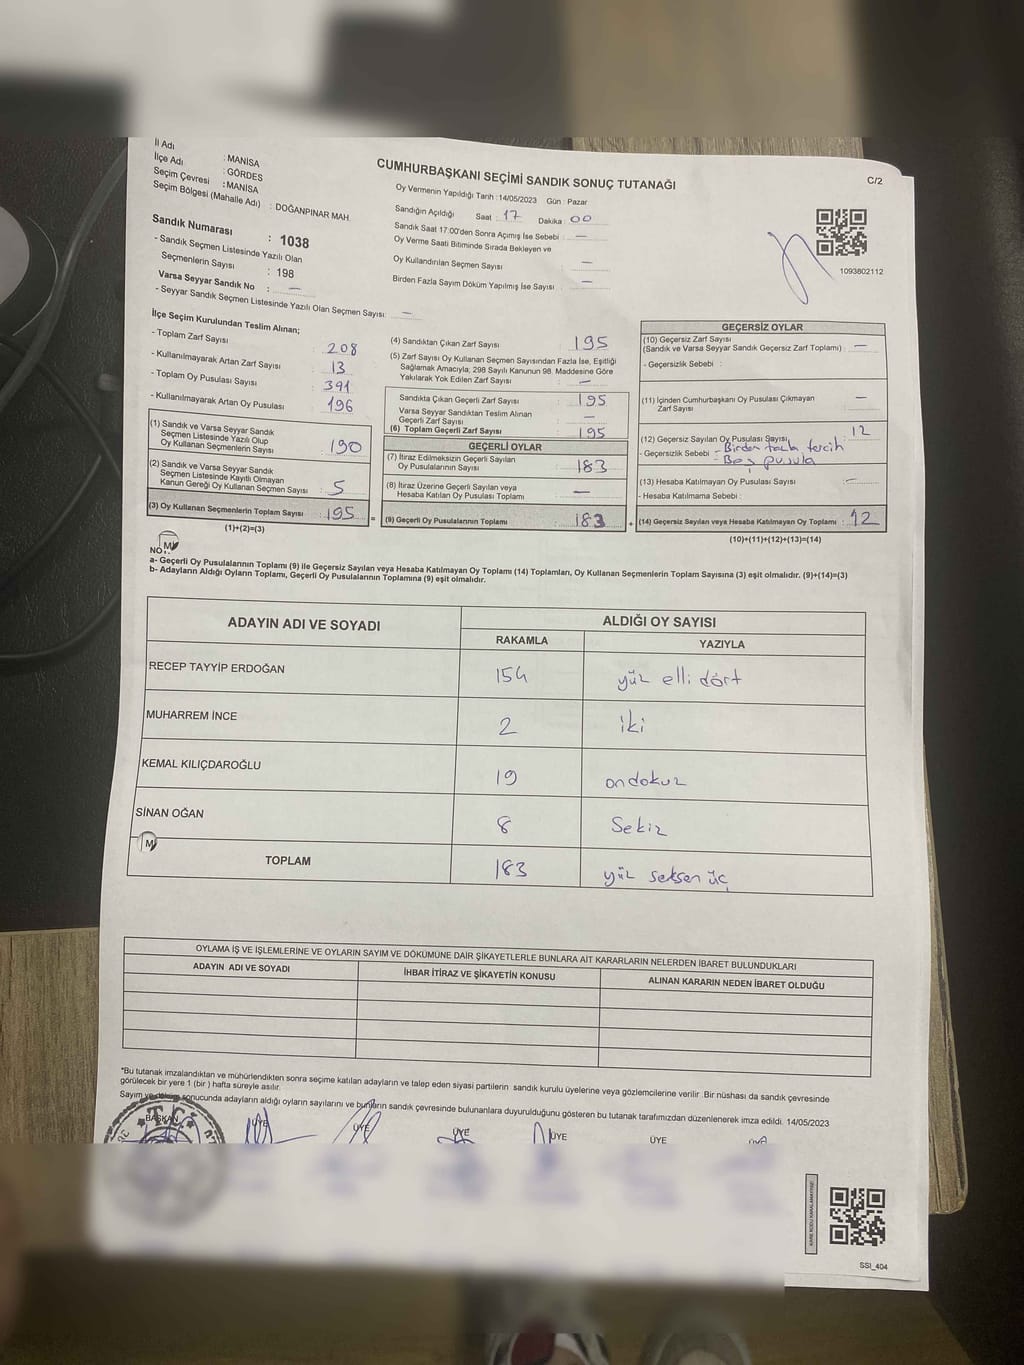 İl Adı : MANİSA
İlçe Adı : GÖRDES
Seçim Çevresi : MANİSA
Seçim Bölgesi (Mahalle Adı) : DOĞANPINAR MAH.
CUMHURBAŞKANI SEÇİMİ SANDIK SONUÇ TUTANAĞI
C/2
Oy Vermenin Yapıldığı Tarih :14/05/2023 Gün : Pazar
Sandığın Açıldığı Saat : 17 Dakika : 00
Sandık Saat 17:00'den Sonra Açılmış İse Sebebi : —
Oy Verme Saati Bitiminde Sırada Bekleyen ve
Oy Kullandırılan Seçmen Sayısı : —
Birden Fazla Sayım Döküm Yapılmış İse Sayısı : —
1093802112
Sandık Numarası : 1038
- Sandık Seçmen Listesinde Yazılı Olan
Seçmenlerin Sayısı : 198
Varsa Seyyar Sandık No : —
- Seyyar Sandık Seçmen Listesinde Yazılı Olan Seçmen Sayısı: —
İlçe Seçim Kurulundan Teslim Alınan;
- Toplam Zarf Sayısı : 208
- Kullanılmayarak Artan Zarf Sayısı : 13
- Toplam Oy Pusulası Sayısı : 391
- Kullanılmayarak Artan Oy Pusulası : 196
(1) Sandık ve Varsa Seyyar Sandık
Seçmen Listesinde Yazılı Olup
Oy Kullanan Seçmenlerin Sayısı : 190
(2) Sandık ve Varsa Seyyar Sandık
Seçmen Listesinde Kayıtlı Olmayan
Kanun Gereği Oy Kullanan Seçmen Sayısı : 5
(3) Oy Kullanan Seçmenlerin Toplam Sayısı : 195
(1)+(2)=(3)
(4) Sandıktan Çıkan Zarf Sayısı : 195
(5) Zarf Sayısı Oy Kullanan Seçmen Sayısından Fazla İse, Eşitliği
Sağlamak Amacıyla; 298 Sayılı Kanunun 98. Maddesine Göre
Yakılarak Yok Edilen Zarf Sayısı : —
Sandıkta Çıkan Geçerli Zarf Sayısı : 195
Varsa Seyyar Sandıktan Teslim Alınan
Geçerli Zarf Sayısı : —
(6) Toplam Geçerli Zarf Sayısı : 195
GEÇERLİ OYLAR
(7) İtiraz Edilmeksizin Geçerli Sayılan
Oy Pusulalarının Sayısı : 183
(8) İtiraz Üzerine Geçerli Sayılan veya
Hesaba Katılan Oy Pusulası Toplamı : —
= (9) Geçerli Oy Pusulalarının Toplamı : 183
GEÇERSİZ OYLAR
(10) Geçersiz Zarf Sayısı
(Sandık ve Varsa Seyyar Sandık Geçersiz Zarf Toplamı) : —
- Geçersizlik Sebebi :
(11) İçinden Cumhurbaşkanı Oy Pusulası Çıkmayan
Zarf Sayısı : —
(12) Geçersiz Sayılan Oy Pusulası Sayısı : 12
- Geçersizlik Sebebi - Birden fazla tercih
- Boş pusula
(13) Hesaba Katılmayan Oy Pusulası Sayısı : —
- Hesaba Katılmama Sebebi :
+ (14) Geçersiz Sayılan veya Hesaba Katılmayan Oy Toplamı : 12
(10)+(11)+(12)+(13)=(14)
M
NO
a- Geçerli Oy Pusulalarının Toplamı (9) ile Geçersiz Sayılan veya Hesaba Katılmayan Oy Toplamı (14) Toplamları, Oy Kullanan Seçmenlerin Toplam Sayısına (3) eşit olmalıdır. (9)+(14)=(3)
b- Adayların Aldığı Oyların Toplamı, Geçerli Oy Pusulalarının Toplamına (9) eşit olmalıdır.
ADAYIN ADI VE SOYADI ALDIĞI OY SAYISI
RAKAMLA YAZIYLA
RECEP TAYYİP ERDOĞAN 154 yüz elli dört
MUHARREM İNCE 2 iki
KEMAL KILIÇDAROĞLU 19 ondokuz
SİNAN OĞAN 8 Sekiz
M
TOPLAM 183 yüz seksen üç
OYLAMA İŞ VE İŞLEMLERİNE VE OYLARIN SAYIM VE DÖKÜMÜNE DAİR ŞİKAYETLERLE BUNLARA AİT KARARLARIN NELERDEN İBARET BULUNDUKLARI
ADAYIN ADI VE SOYADI İHBAR İTİRAZ VE ŞİKAYETİN KONUSU ALINAN KARARIN NEDEN İBARET OLDUĞU
*Bu tutanak imzalandıktan ve mühürlendikten sonra seçime katılan adayların ve talep eden siyasi partilerin sandık kurulu üyelerine veya gözlemcilerine verilir .Bir nüshası da sandık çevresinde
görülecek bir yere 1 (bir ) hafta süreyle asılır.
Sayım ve döküm sonucunda adayların aldığı oyların sayılarını ve bunların sandık çevresinde bulunanlara duyurulduğunu gösteren bu tutanak tarafımızdan düzenlenerek imza edildi. 14/05/2023
BAŞKAN ÜYE ÜYE ÜYE ÜYE ÜYE ÜYE
T.C.
SSİ_404